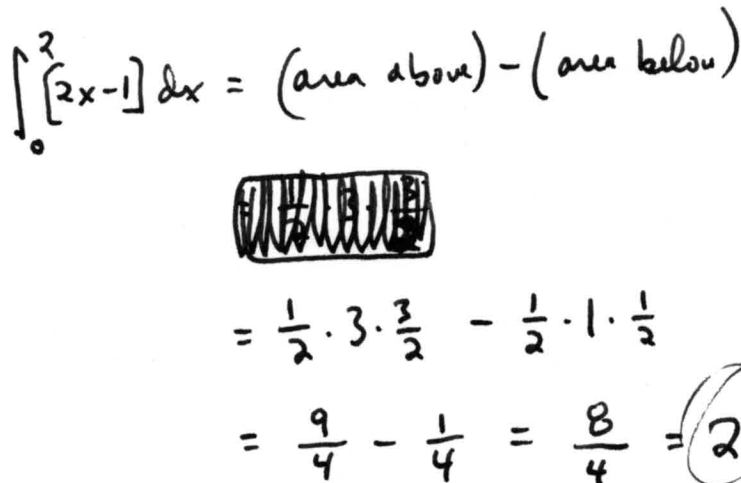 ∫₀² [2x-1] dx = (area above) - (area below)
= 1/2 · 3 · 3/2 - 1/2 · 1 · 1/2
= 9/4 - 1/4 = 8/4 = 2